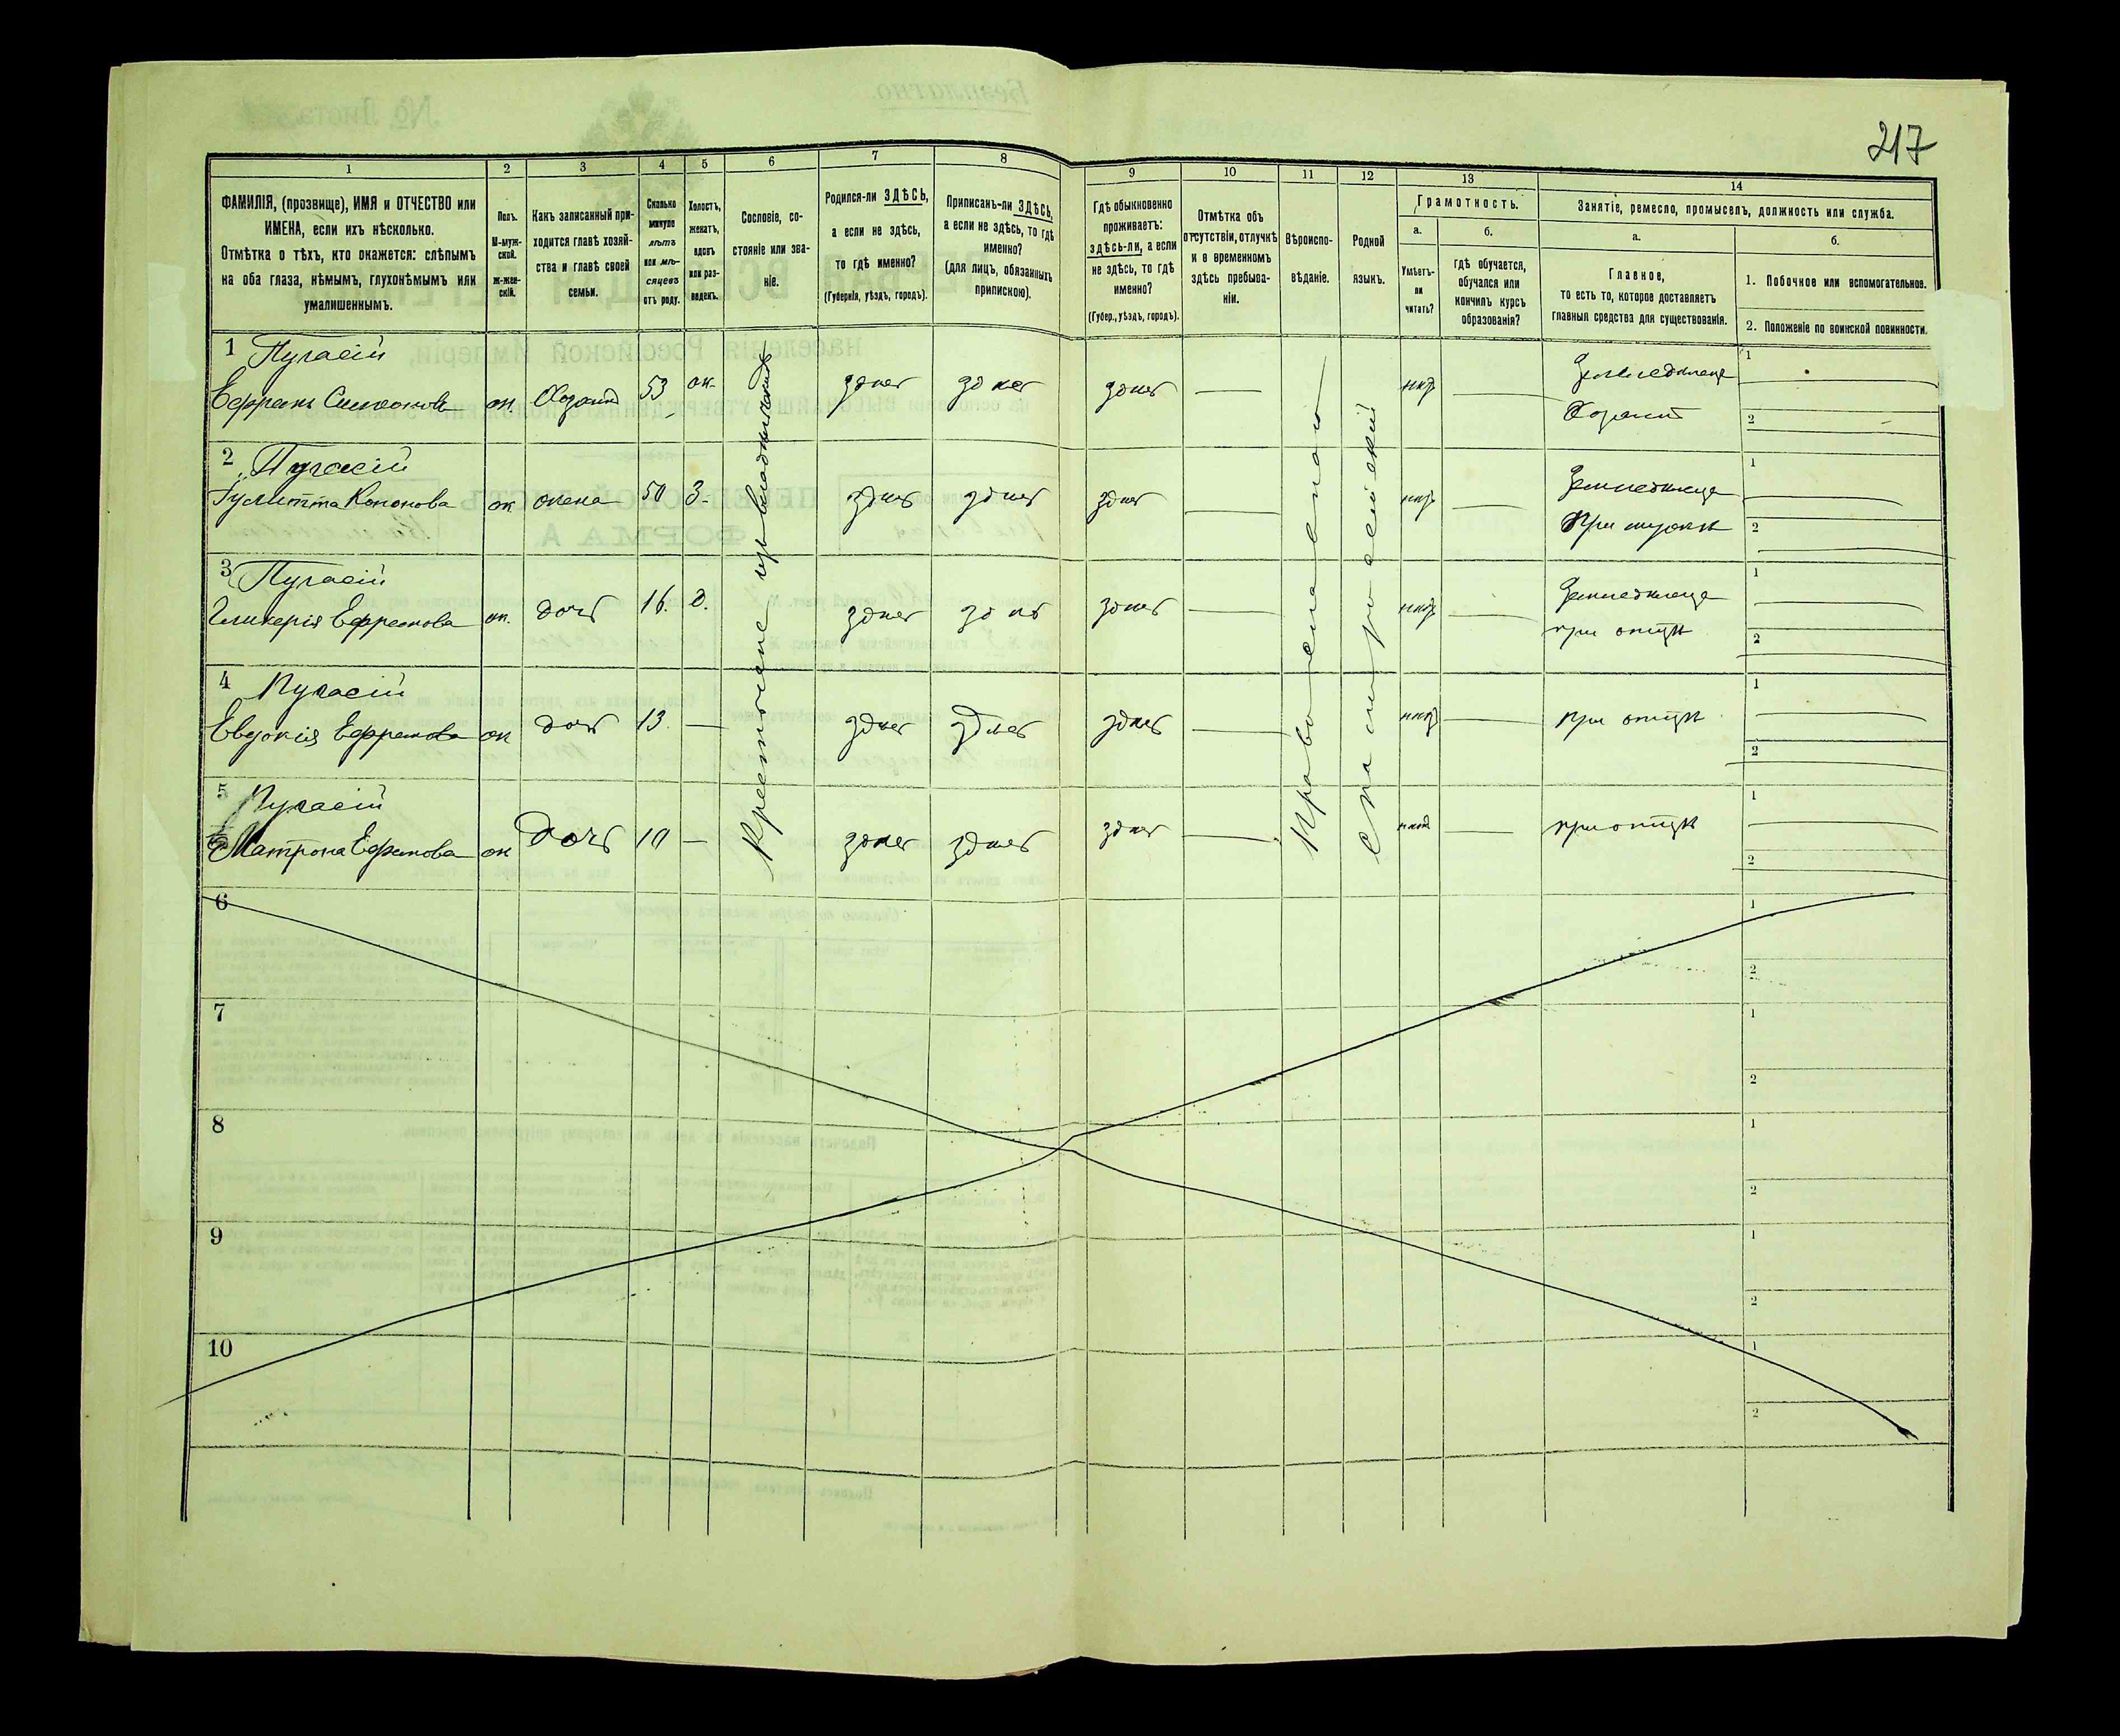 217
1
2
3
4
5
6
7
8
9
10
11
12
13
14
ФАМИЛІЯ, (прозвище), ИМЯ и ОТЧЕСТВО или
ИМЕНА, если ихъ нѣсколько.
Отмѣтка о тѣхъ, кто окажется: слѣпымъ
на оба глаза, нѣмымъ, глухонѣмымъ или
умалишеннымъ.
Полъ.
М-муж-
ской.
ж-жен-
скій.
Какъ записанный при-
ходится главѣ хозяй-
ства и главѣ своей
семьи.
Сколько
минуло
лѣтъ
или мѣ-
сяцевъ
отъ роду.
Холостъ,
женатъ,
вдовъ
или раз-
веденъ.
Сословіе, со-
стояніе или зва-
ніе.
Родился-ли ЗДѢСЬ,
а если не здѣсь,
то гдѣ именно?
(Губернія, уѣздъ, городъ).
Приписанъ-ли ЗДѢСЬ,
а если не здѣсь, то гдѣ
именно?
(для лицъ, обязанныхъ
припискою).
Гдѣ обыкновенно
проживаетъ:
здѣсь-ли, а если
не здѣсь, то гдѣ
именно?
(Губер., уѣздъ, городъ).
Отмѣтка объ
отсутствіи, отлучкѣ
и о временномъ
здѣсь пребыва-
ніи.
Вѣроиспо-
вѣданіе.
Родной
языкъ.
Грамотность.
а.
Умѣетъ-
ли
читать?
б.
гдѣ обучается,
обучался или
кончилъ курсъ
образованія?
Занятіе, ремесло, промыселъ, должность или служба.
а.
Главное,
то есть то, которое доставляетъ
главныя средства для существованія.
б.
1. Побочное или вспомогательное.
2. Положеніе по воинской повинности.
1
Ефремъ
м. Хозяинъ 53 ж. здѣсь здѣсь здѣсь — нѣтъ — Земледѣлецъ
Хозяинъ
1
2
2
Кононова ж. жена 50 З. здѣсь здѣсь здѣсь — нѣтъ — Земледѣлица
При мужѣ
1
2
3
Гликерія Ефремова ж. дочь 16. Д. здѣсь здѣсь здѣсь — нѣтъ — Земледѣлица
при отцѣ
1
2
4
Евдокія Ефремова ж дочь 13. — здѣсь здѣсь здѣсь — нѣтъ — при отцѣ
1
2
5
Матрона Ефремова ж дочь 10 — здѣсь здѣсь здѣсь — нѣтъ — при отцѣ
1
2
Православное
6
1
2
7
1
2
8
1
2
9
1
2
10
1
2